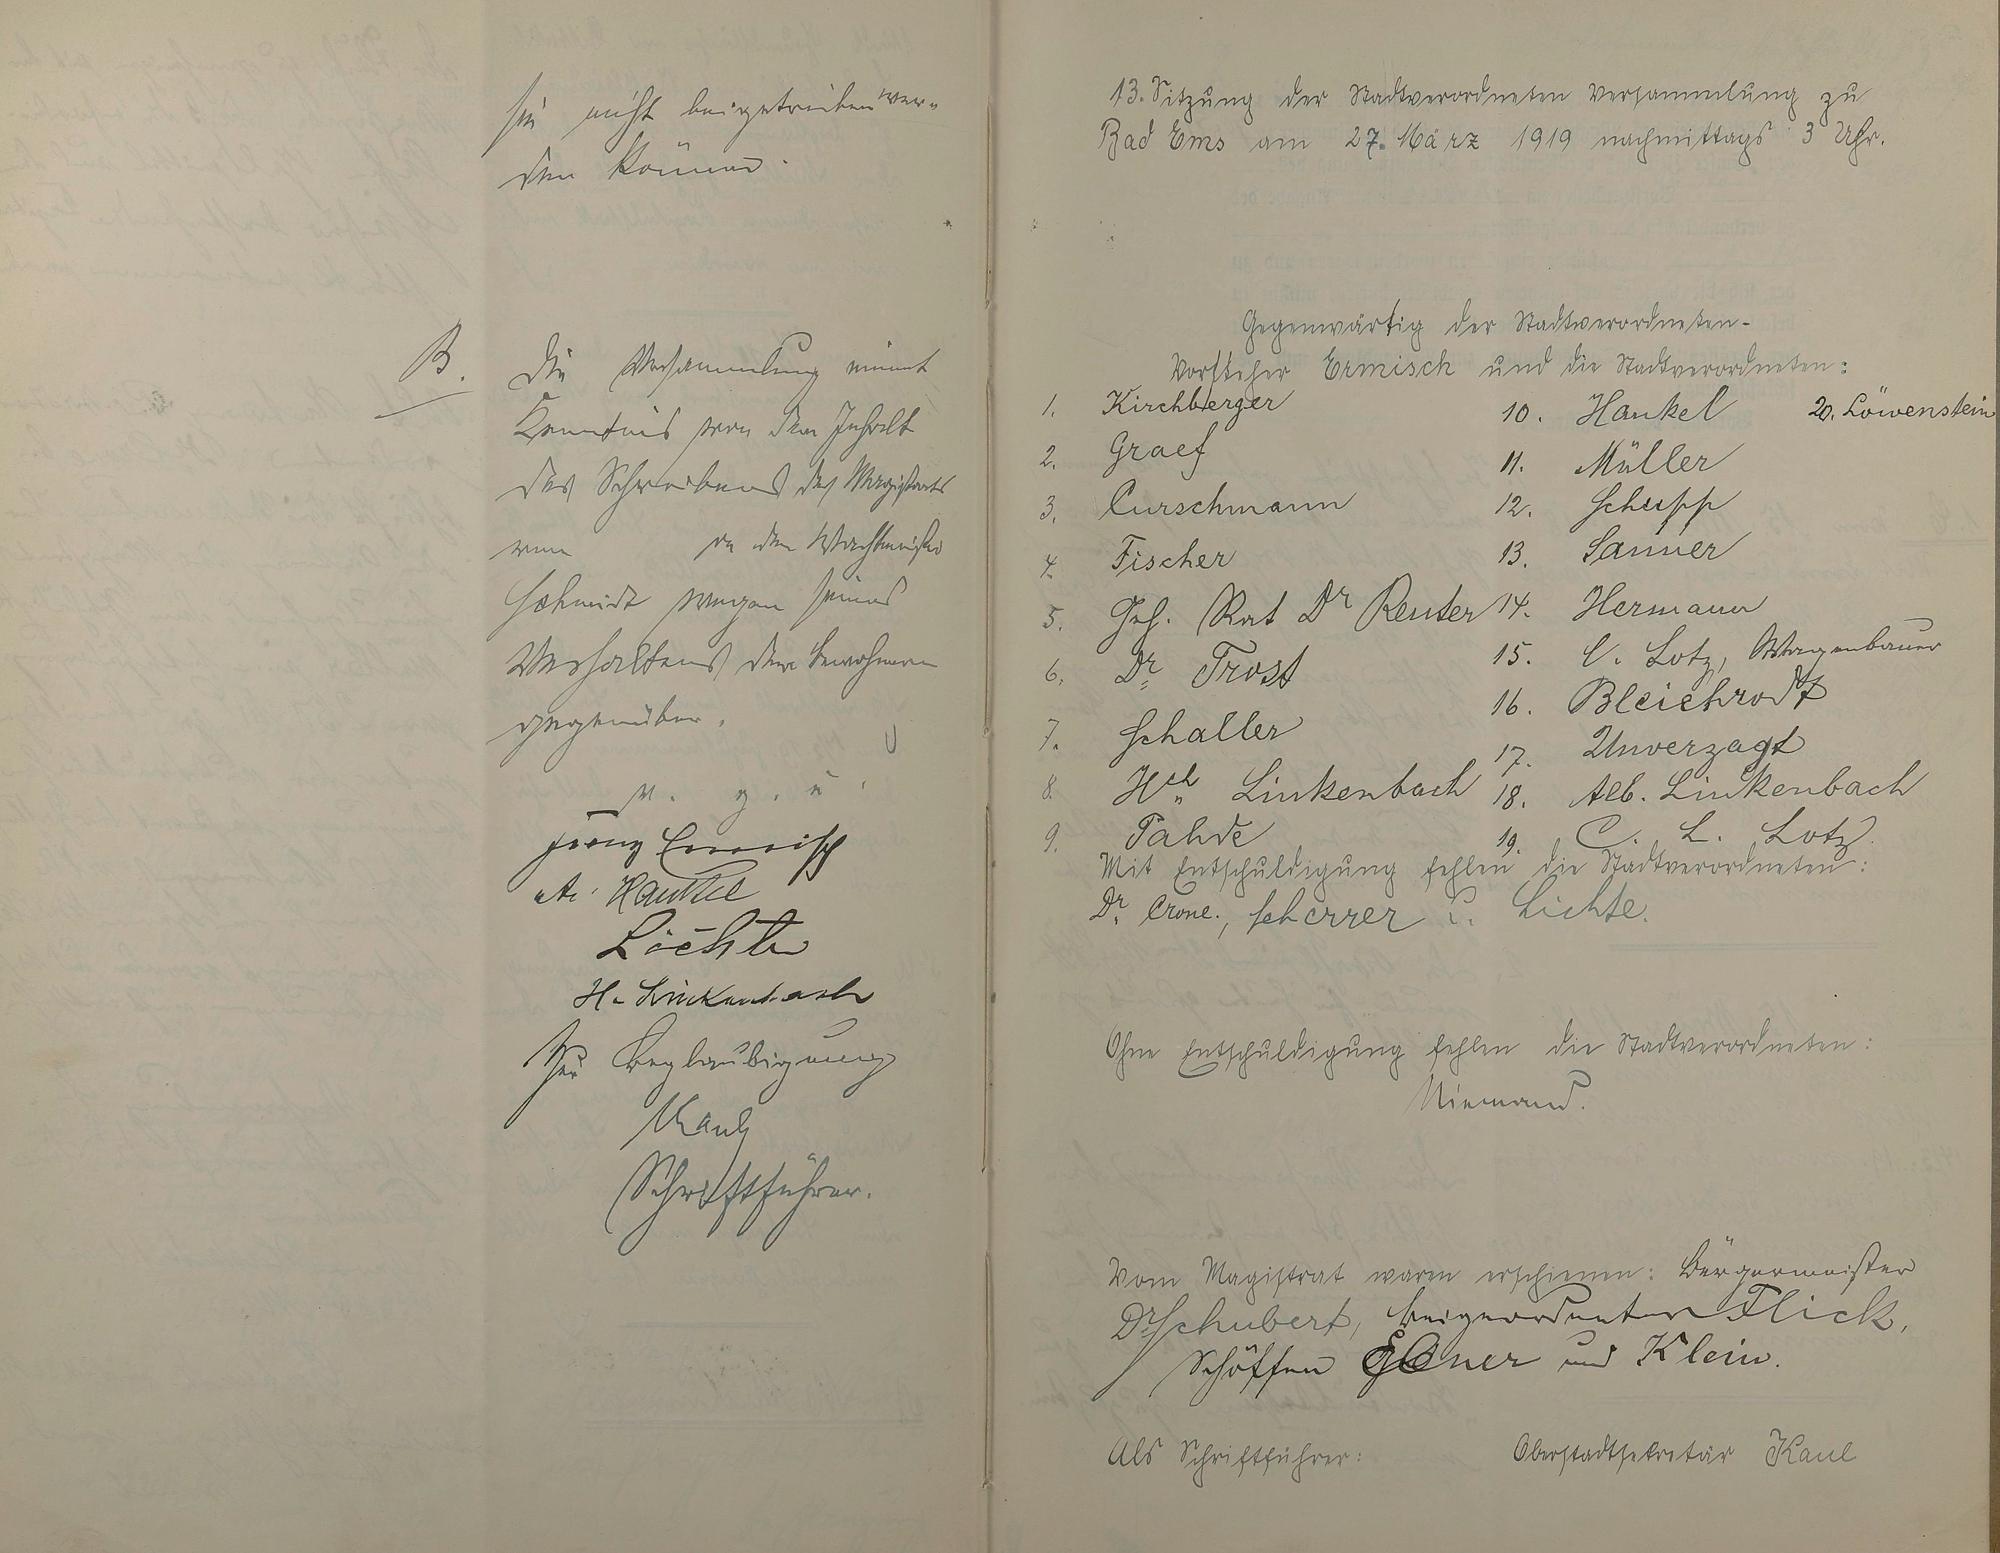 sie nicht beigetrieben wer-
den können.
B.
Die Versammlung nimmt
Kenntnis von dem Inhalt
des Schreibens des Magistrats
vom an den Wachtmeister
Schmidt wegen seines
Verhaltens den Bewohnern
gegenüber.
v. g. u.
Franz Ermisch
A. Hankel
H. Linkenbach
Zur Beglaubigung
Kaul
Schriftführer.
13. Sitzung der Stadtverordneten Versammlung zu
Bad Ems am 27. März 1919 nachmittags 3 Uhr.
Gegenwärtig der Stadtverordneten-
Vorsteher Ermisch und die Stadtverordneten:
1. Kirchberger
2. Graef
3. Curschmann
4. Fischer
5. Geh. Rat Dr Reuter
6. Dr. Trost
7. Schaller
8. Hch. Linkenbach
9. Pahde
10. Hankel
11. Müller
12. Schupp
13. Sanner
14. Hermann
15. C. Lotz, Wagenbauer
16. Bleichrodt
17. Unverzagt
18. Alb. Linkenbach
19. C. L. Lotz.
20. Löwenstein
Mit Entschuldigung fehlen die Stadtverordneten:
Dr. Crone, Scherrer u. Lichte.
Ohne Entschuldigung fehlen die Stadtverordneten:
Niemand.
Vom Magistrat waren erschienen: Bürgermeister
Dr. Schubert, Beigeordneter Flick,
Schöffen und Klein.
Als Schriftführer: Oberstadtsekretär Kaul